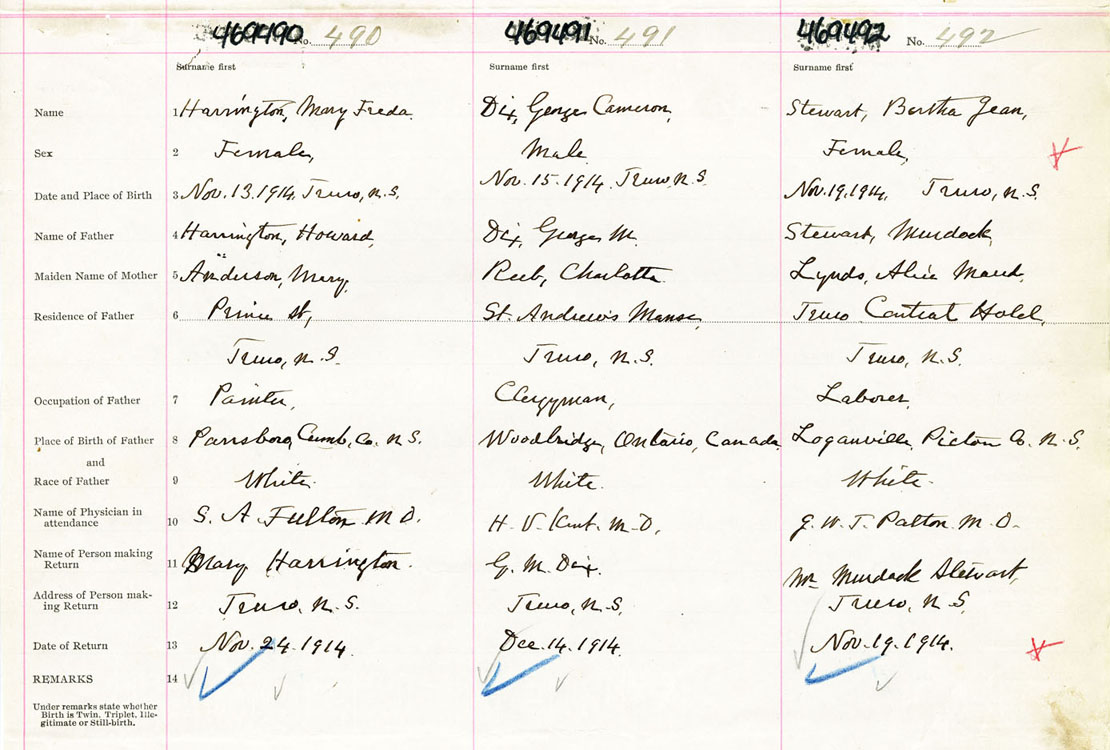 469490 No. 490 469491 No. 491 469492 No. 492
Surname first Surname first Surname first
Name 1 Harrington, Mary Freda. Dix, George Cameron, Stewart, Bertha Jean,
Sex 2 Female, Male Female,
Date and Place of Birth 3 Nov. 13. 1914, Truro, N.S. Nov. 15. 1914. Truro, N.S. Nov. 19. 1914, Truro, N.S.
Name of Father 4 Harrington, Howard, Dix, George M. Stewart, Murdock,
Maiden Name of Mother 5 Anderson, Mary, Charlotte. Lynds, Alice Maud,
Residence of Father 6 Prince St, St. Andrews Manse, Truro Central Hotel,
Truro, N.S. Truro, N.S. Truro, N.S.
Occupation of Father 7 Painter, Clergyman, Laborer,
Place of Birth of Father 8 Parrsboro, Cumb. Co. N.S. Woodbridge, Ontario, Canada Loganville, Pictou Co. N.S.
and
Race of Father 9 White. White. White.
Name of Physician in
attendance 10 S. A. Fulton M.D. H. V. Kent. M.D. M.D.
Name of Person making
Return 11 Mary Harrington. G. M. Dix. Murdock Stewart,
Address of Person mak-
ing Return 12 Truro, N.S. Truro, N.S. Truro, N.S.
Date of Return 13 Nov. 24. 1914. Dec. 14. 1914. Nov. 19. 1914.
REMARKS 14
Under remarks state whether
Birth is Twin, Triplet, Ille-
gitimate or Still-birth.